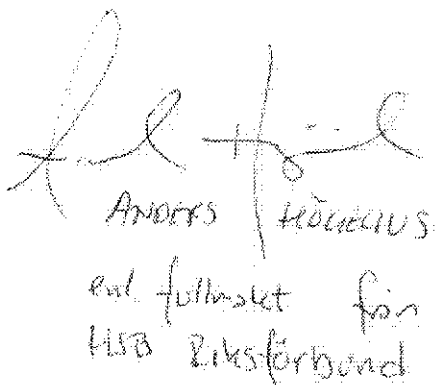 ANDERS HÖGELIUS
enl fullmakt från
HSB Riksförbund